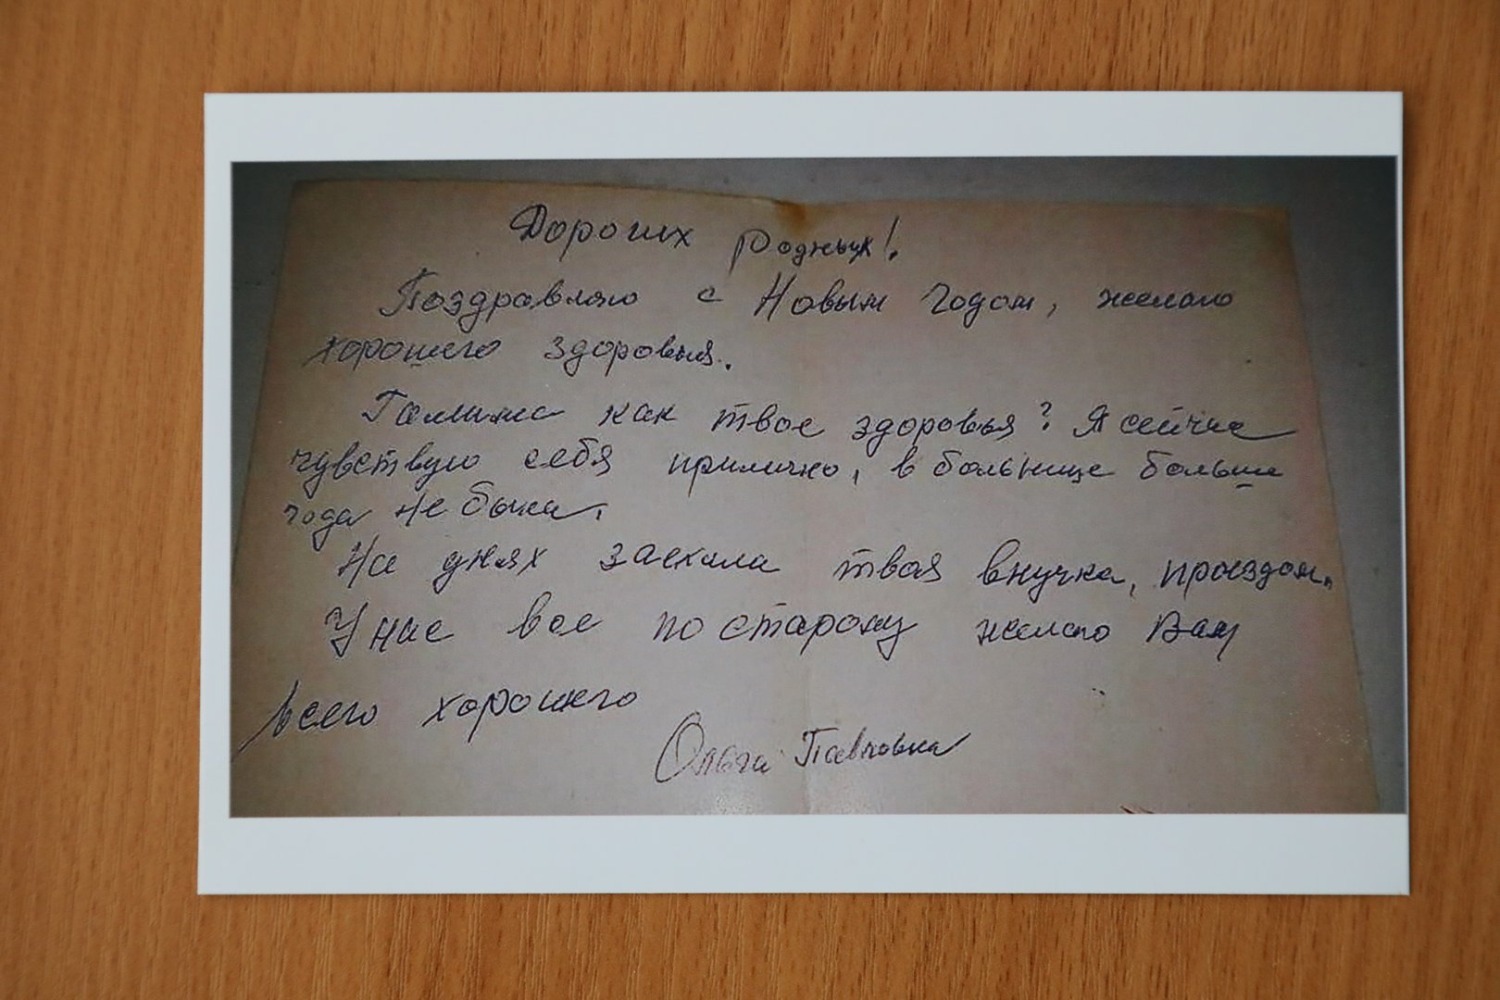 Дорогих родных!
Поздравляю с Новым годом, желаю
хорошего здоровья.
Галина как твое здоровья? Я сейчас
чувствую себя прилично, в больнице больше
года не была.
На днях заехала твоя внучка, проездом.
У нас все по старому желаю Вам
всего хорошего
Ольга Павловна